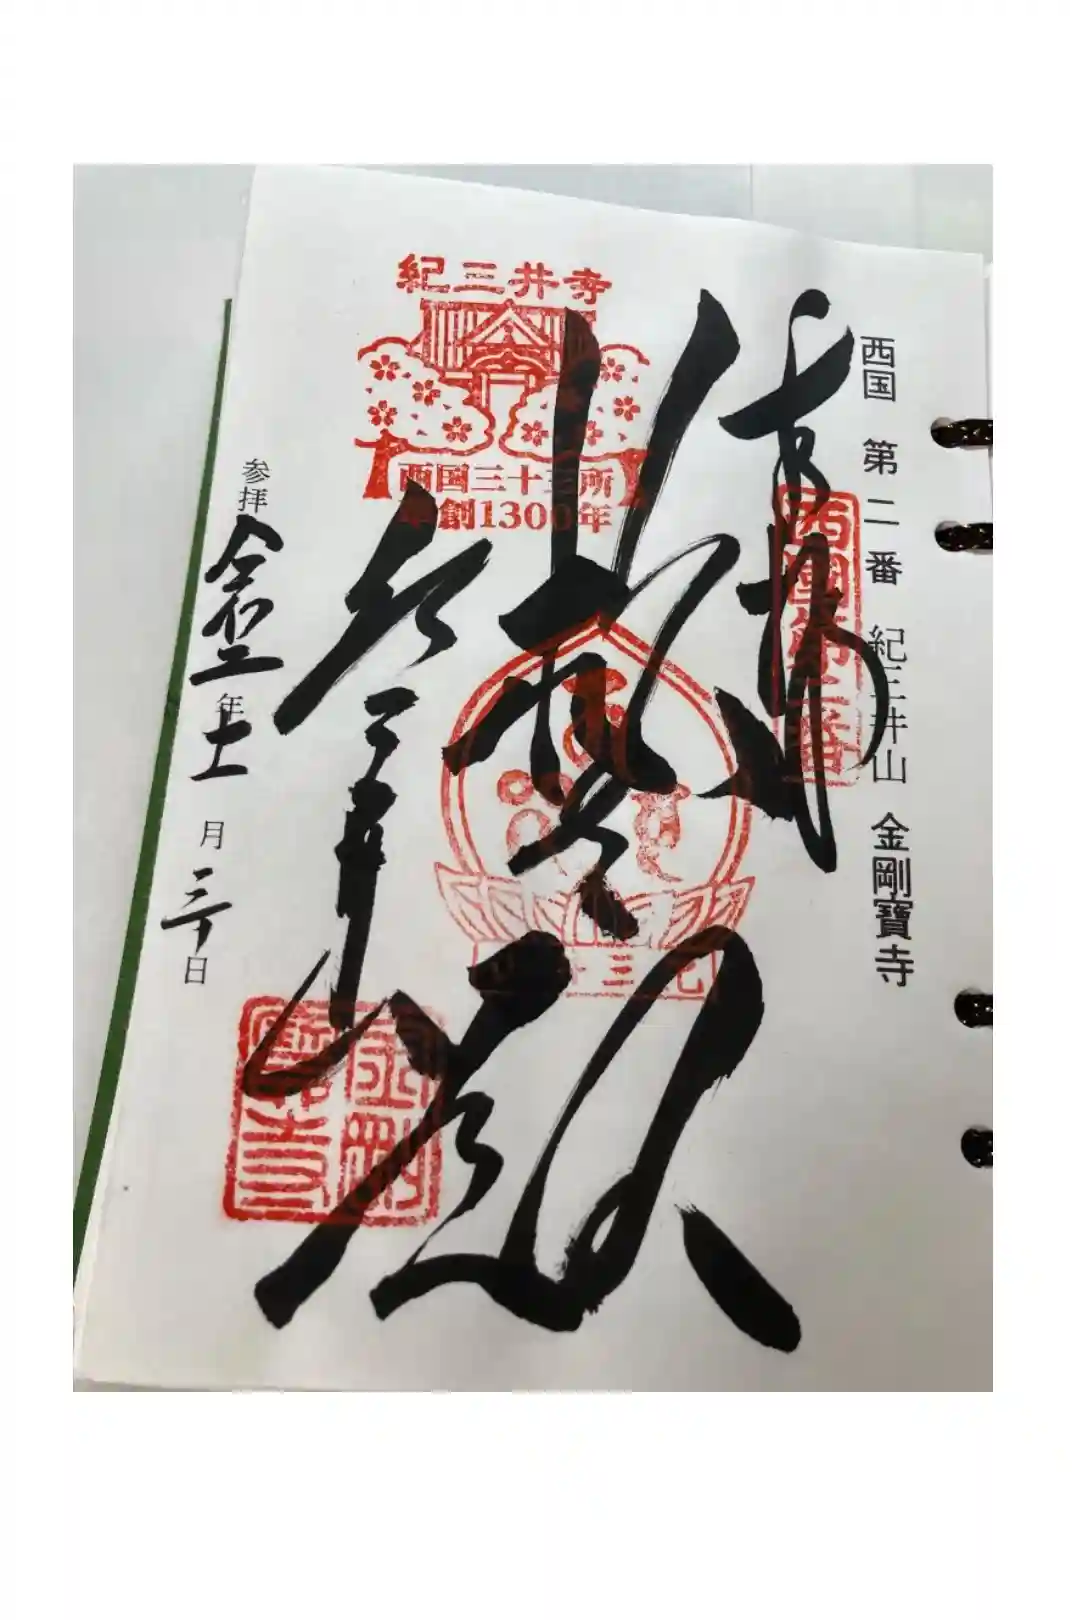 西国 第二番 紀三井山 金剛寶寺
奉拝
西國第二番
救世殿
紀三井寺
西国三十三所
草創1300年
紀三井寺
金剛寶寺
参拝 令和二年十一月三十日